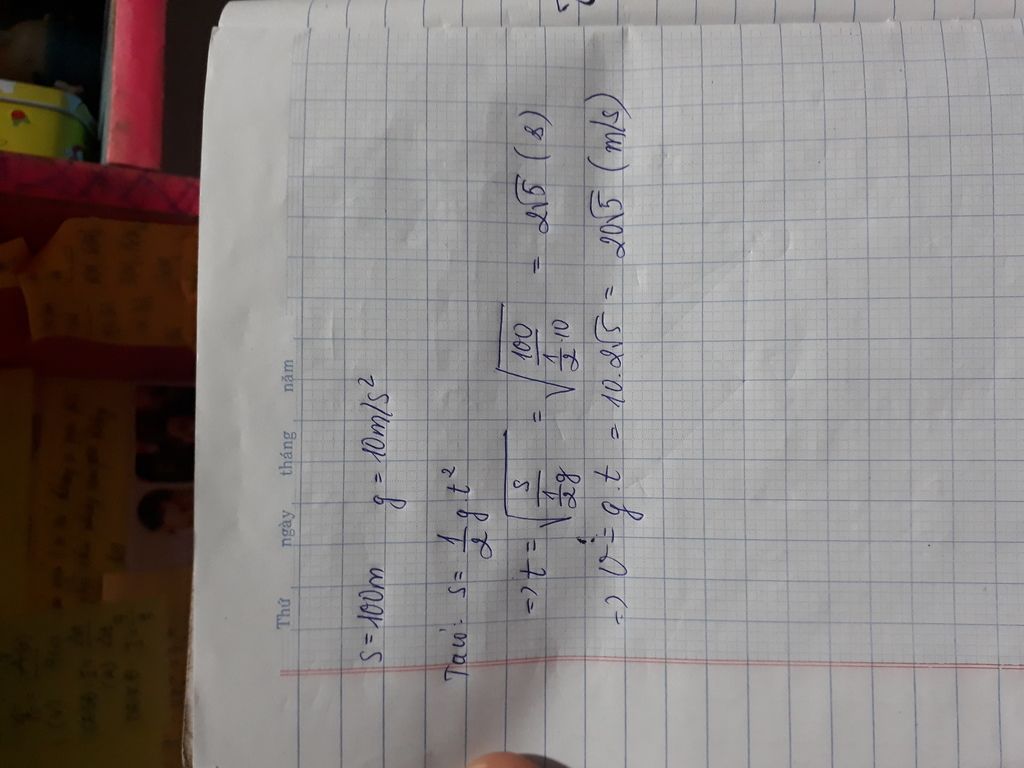 Thứ ngày tháng năm
S = 100m g = 10m/s²
Ta có: s = 1/2 g.t²
=> t = √(s/(1/2 g)) = √(100/(1/2 .10)) = 2√5 (s)
=> v = g.t = 10.2√5 = 20√5 (m/s)